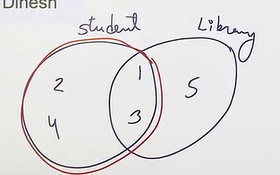 Dinesh
student Library
2 1 5
4 3